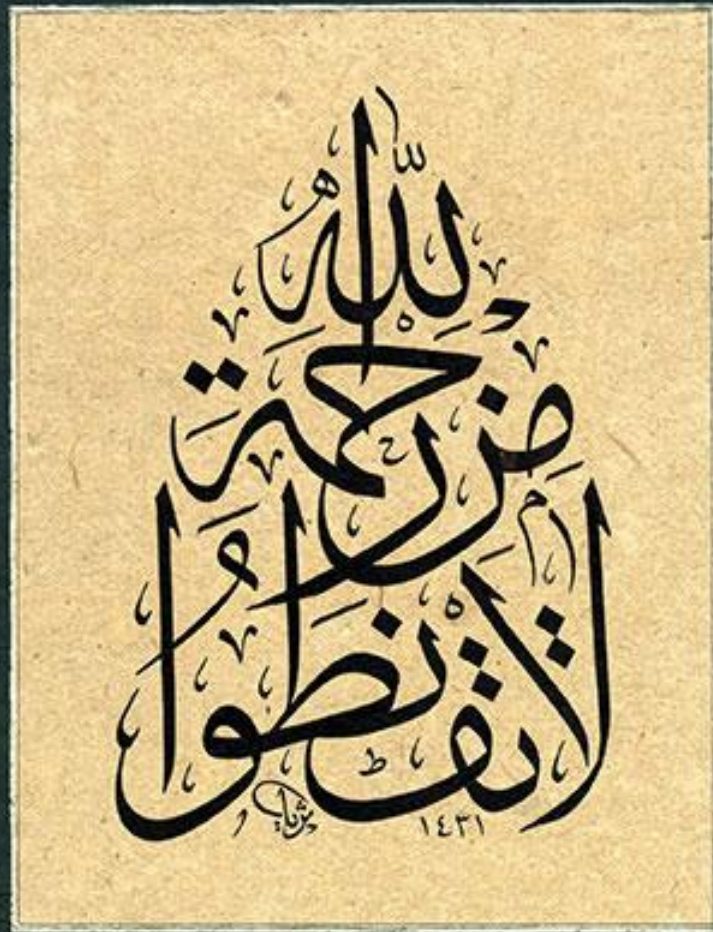 لَا تَقْنَطُوا
مِنْ رَحْمَةِ
اللّٰهِ
١٤٣١